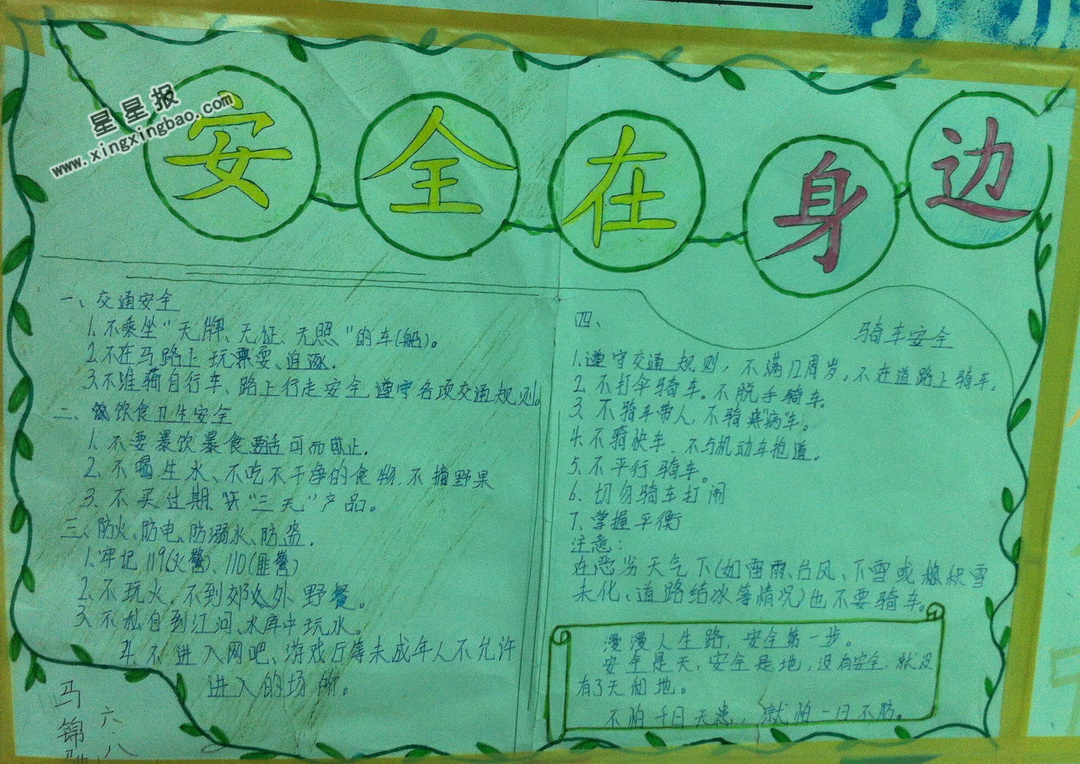 星星报
www.xingxingbao.com
安全在身边
一、交通安全
1.不乘坐"无牌、无证、无照"的车(船)。
2.不在马路上玩耍、追逐.
3.不准骑自行车、路上行走安全遵守各项交通规则。
二、饮食卫生安全
1.不要暴饮暴食 适可而止.
2.不喝生水、不吃不干净的食物.不摘野果
3.不买过期"三无"产品。
三、防火、防电、防溺水、防盗.
1.牢记119(火警)、110(匪警)
2.不玩火,不到郊外野餐。
3.不私自到江河、水库中玩水。
4.不进入网吧、游戏厅等未成年人不允许
进入的场所。
马锦
六八
四、
骑车安全
1.遵守交通规则,不满12周岁,不在道路上骑车.
2.不打伞骑车。不脱手骑车.
3.不骑车带人,不骑"病"车。
4.不骑快车.不与机动车抢道。
5.不平行骑车。
6.切勿骑车打闹
7.掌握平衡
注意:
在恶劣天气下(如雷雨、台风、下雪或积雪
未化、道路结冰等情况)也不要骑车。
漫漫人生路,安全第一步。
安全是天,安全是地,没有安全,就没
有了天和地。
不怕千日无患,就怕一日不防。